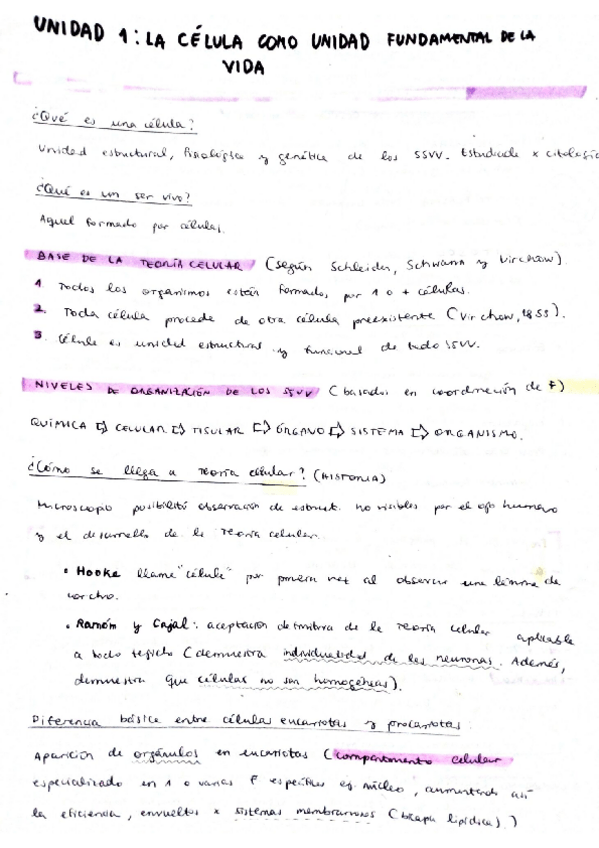 UNIDAD 1: LA CÉLULA COMO UNIDAD FUNDAMENTAL DE LA
VIDA
¿Qué es una célula?
Unidad estructural, fisiológica y genética de los SSVV. Estudiada x citología
¿Qué es un ser vivo?
Aquel formado por células.
BASE DE LA TEORÍA CELULAR (según Schleiden, Schwann y Virchow)
1. Todos los organismos están formados por 1 o + células.
2. Toda célula procede de otra célula preexistente (Virchow, 1855).
3. Célula es unidad estructural y funcional de todo SSVV.
NIVELES DE ORGANIZACIÓN DE LOS SSVV (basados en coordinación de F)
QUÍMICA ⇨ CELULAR ⇨ TISULAR ⇨ ÓRGANO ⇨ SISTEMA ⇨ ORGANISMO.
¿Cómo se llega a teoría celular? (HISTORIA)
Microscopio posibilitó observación de estruct. no visibles por el ojo humano
y el desarrollo de la teoría celular.
• Hooke llama "célula" por primera vez al observar una lámina de
corcho.
• Ramón y Cajal: aceptación definitiva de la teoría celular aplicable
a todo tejido (demuestra individualidad de las neuronas. Además,
demuestra que células no son homogéneas).
Diferencia básica entre células eucariotas y procariotas:
Aparición de orgánulos en eucariotas (compartimento celular
especializado en 1 o varias F específicas ej. núcleo, aumentando así
la eficiencia, envueltos x sistemas membranosos (bicapa lipídica).)